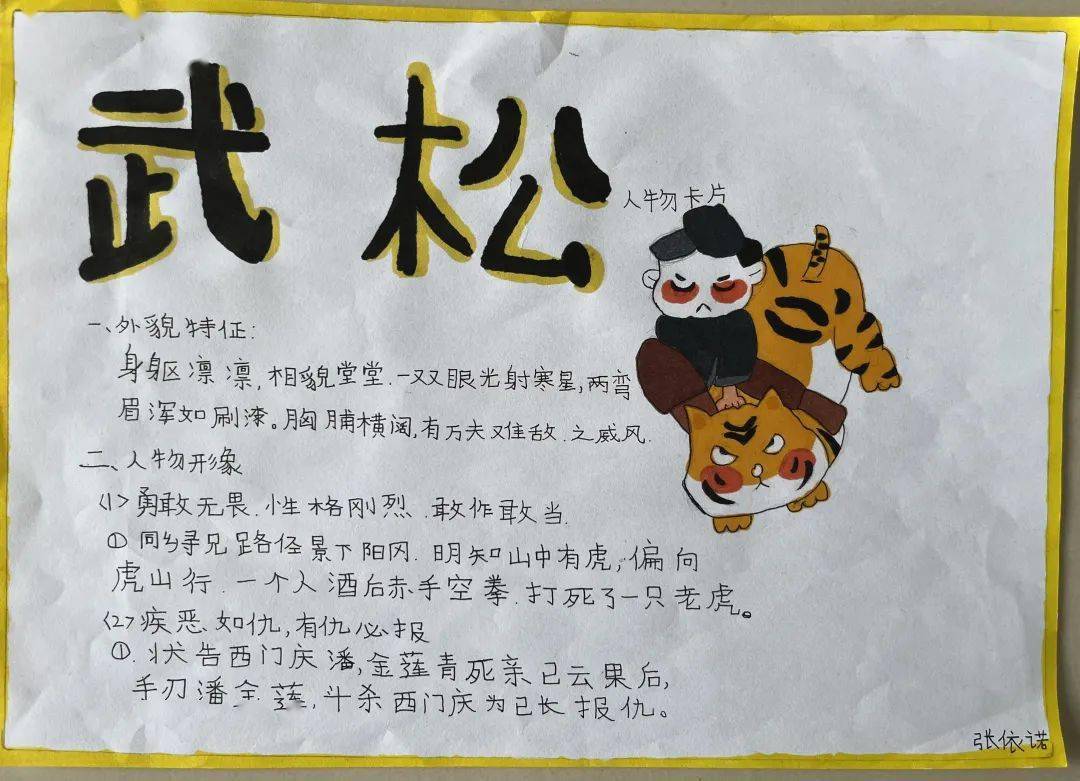 武松
人物卡片
一、外貌特征:
身躯凛凛,相貌堂堂.一双眼光射寒星,两弯
眉浑如刷漆。胸脯横阔,有万夫难敌.之威风.
二、人物形象
<1>勇敢无畏.性格刚烈.敢作敢当.
① 同乡寻兄路径景下阳冈.明知山中有虎,偏向
虎山行.一个人酒后赤手空拳.打死了一只老虎。
<2>疾恶如仇,有仇必报
①.状告西门庆潘,金莲青死亲已云果后,
手刃潘金莲,斗杀西门庆为已长报仇。
张依诺